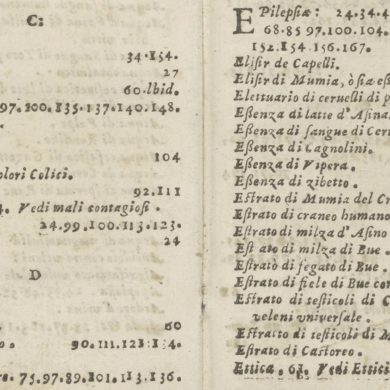 C:
34·154.
27
60·Ibid.
97·100.135·137·140·148.
104
olori Colici.
92.111
Vedi mali contagiosi.
24.99.100.113.123.
24
D
60
90.111.121:134.
75.97.89.101.113.136.
EPilepsiæ: 24.34.4
68.85 97.100.104.
152.154.156.167.
Elisir de Capelli.
Elisir di Mumia, ò sia
Elettuario di ceruelli di
Eſſenza di latte d'Asina
Eſſenza di sangue di
Eſſenza di Cagnolini.
Eſſenza di Vipera.
Eſſenza di zibetto.
Eſtrato di Mumia del
Eſtrato di craneo humano
Eſtrato di milza d'Asino
Eſt ato di milza di Bue.
Eſtrato di fegato di Bue.
Eſtrato di fiele di Bue
Eſtrato di teſticoli di
veleni vniuersale.
Eſtratto di teſticoli di
Eſtrato di Caſtoreo.
Ettica. 63. Vedi